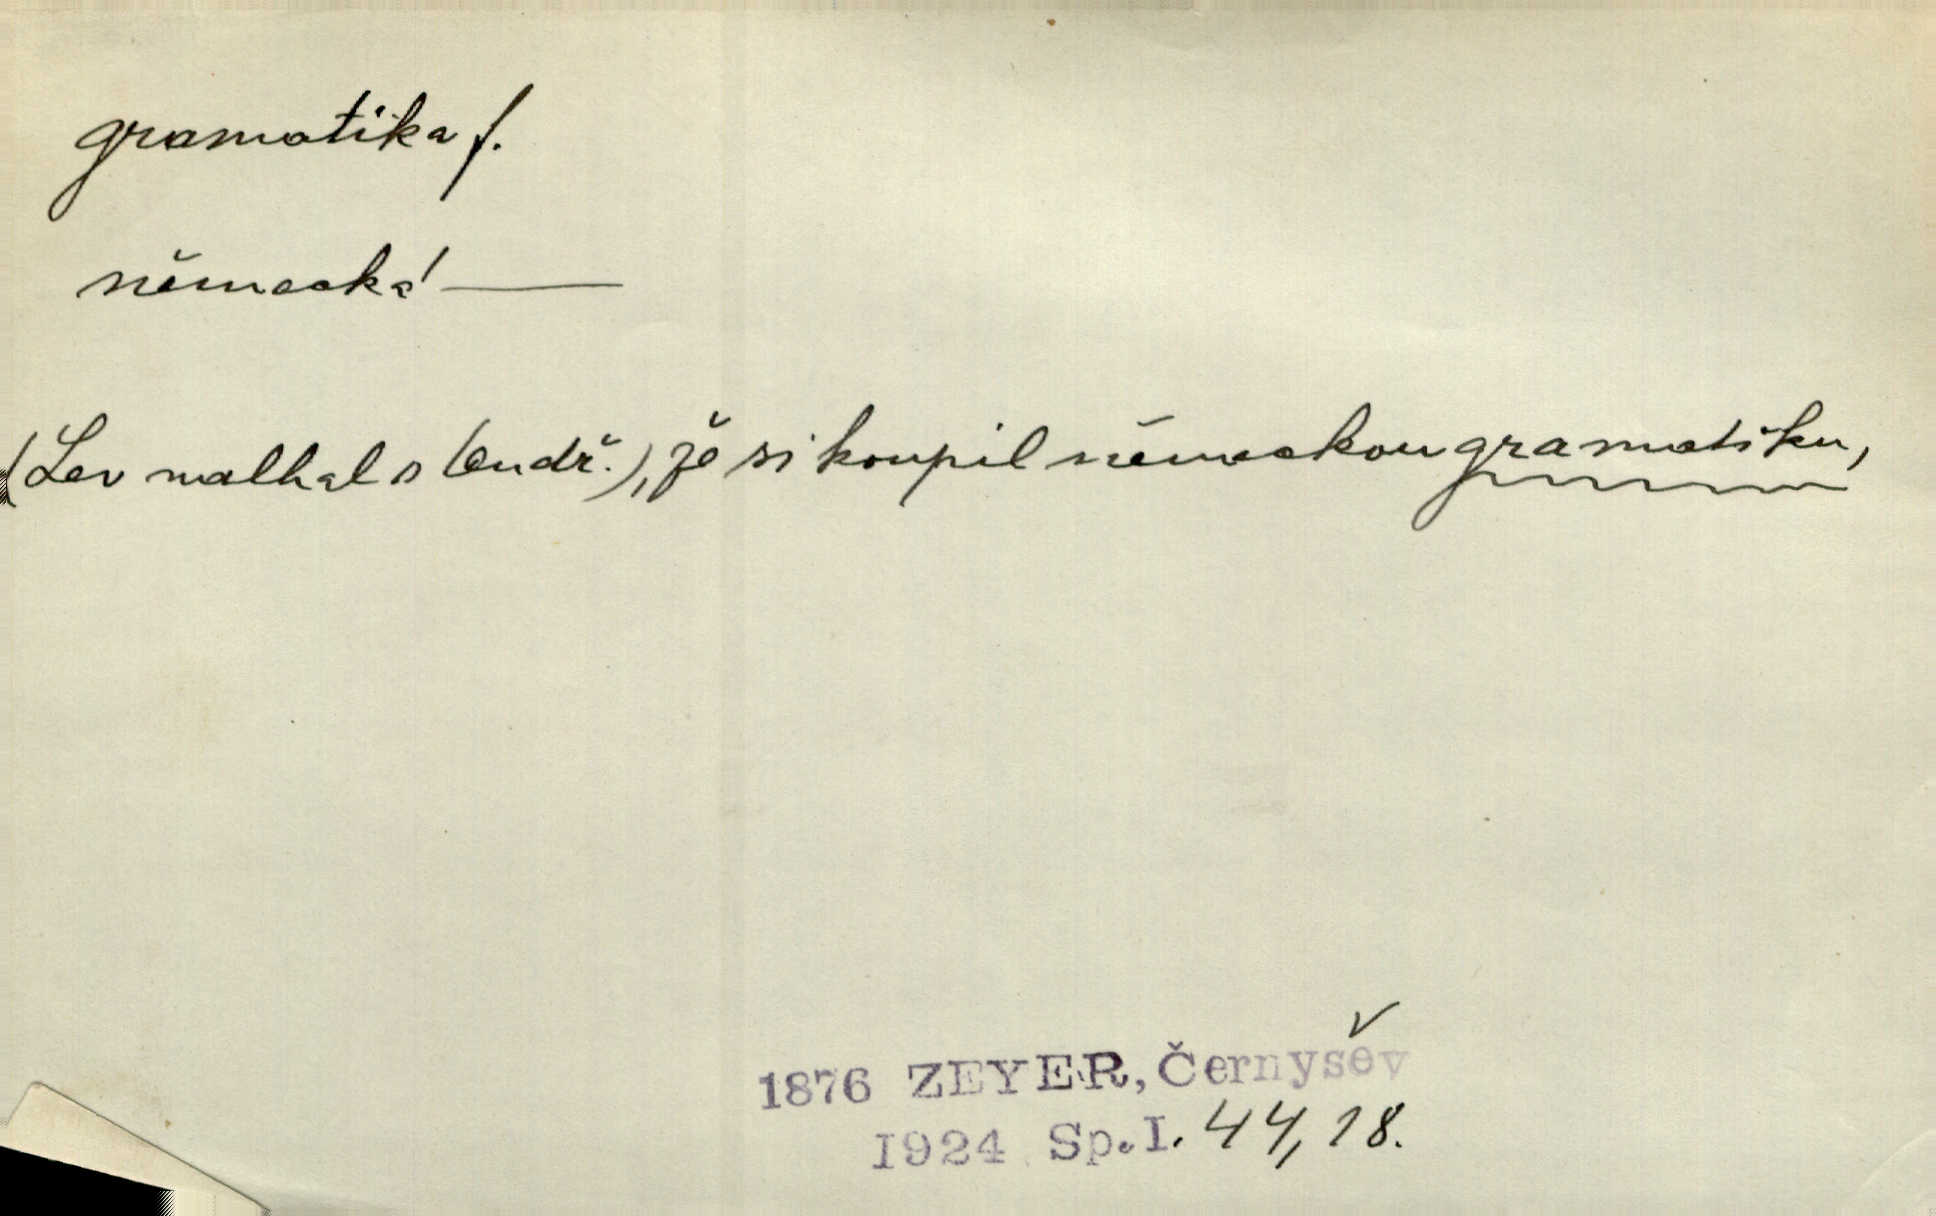 gramatika f.
německá —
(Lev walhal s Ondř.), že si koupil německou gramatiku,
1876 ZEYER, Černyšev
1924 Sp.I. 44, 18.